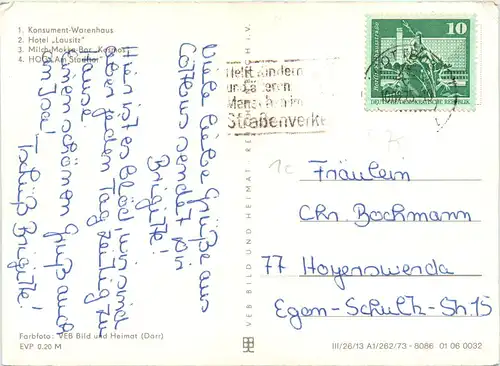 1. Konsument-Warenhaus
2. Hotel „Lausitz"
3. Milch-Mokka-Bar „Kosmos"
4. HOG „Am Stadttor"
Viele liebe Grüße aus
Cottbus sendet Dir
Brigitte!
Hier ist es blöd, wir sind
jeden Tag zeitig zu
Hause.
Einen schönen Gruß auch
an Joa! Tschüß Brigitte!
Farbfoto: VEB Bild und Heimat (Darr)
EVP 0.20 M
VEB BILD UND HEIMAT REICHENBACH I. V.
Helft Kindern
und älteren
Menschen im
Straßenverke
10
DEUTSCHE DEMOKRATISCHE REPUBLIK
1c
Fräulein
Chr. Bachmann
77 Hoyerswerda
Egon-Schultz-Str. 15
III/26/13 A1/262/73 - 8086 01 06 0032